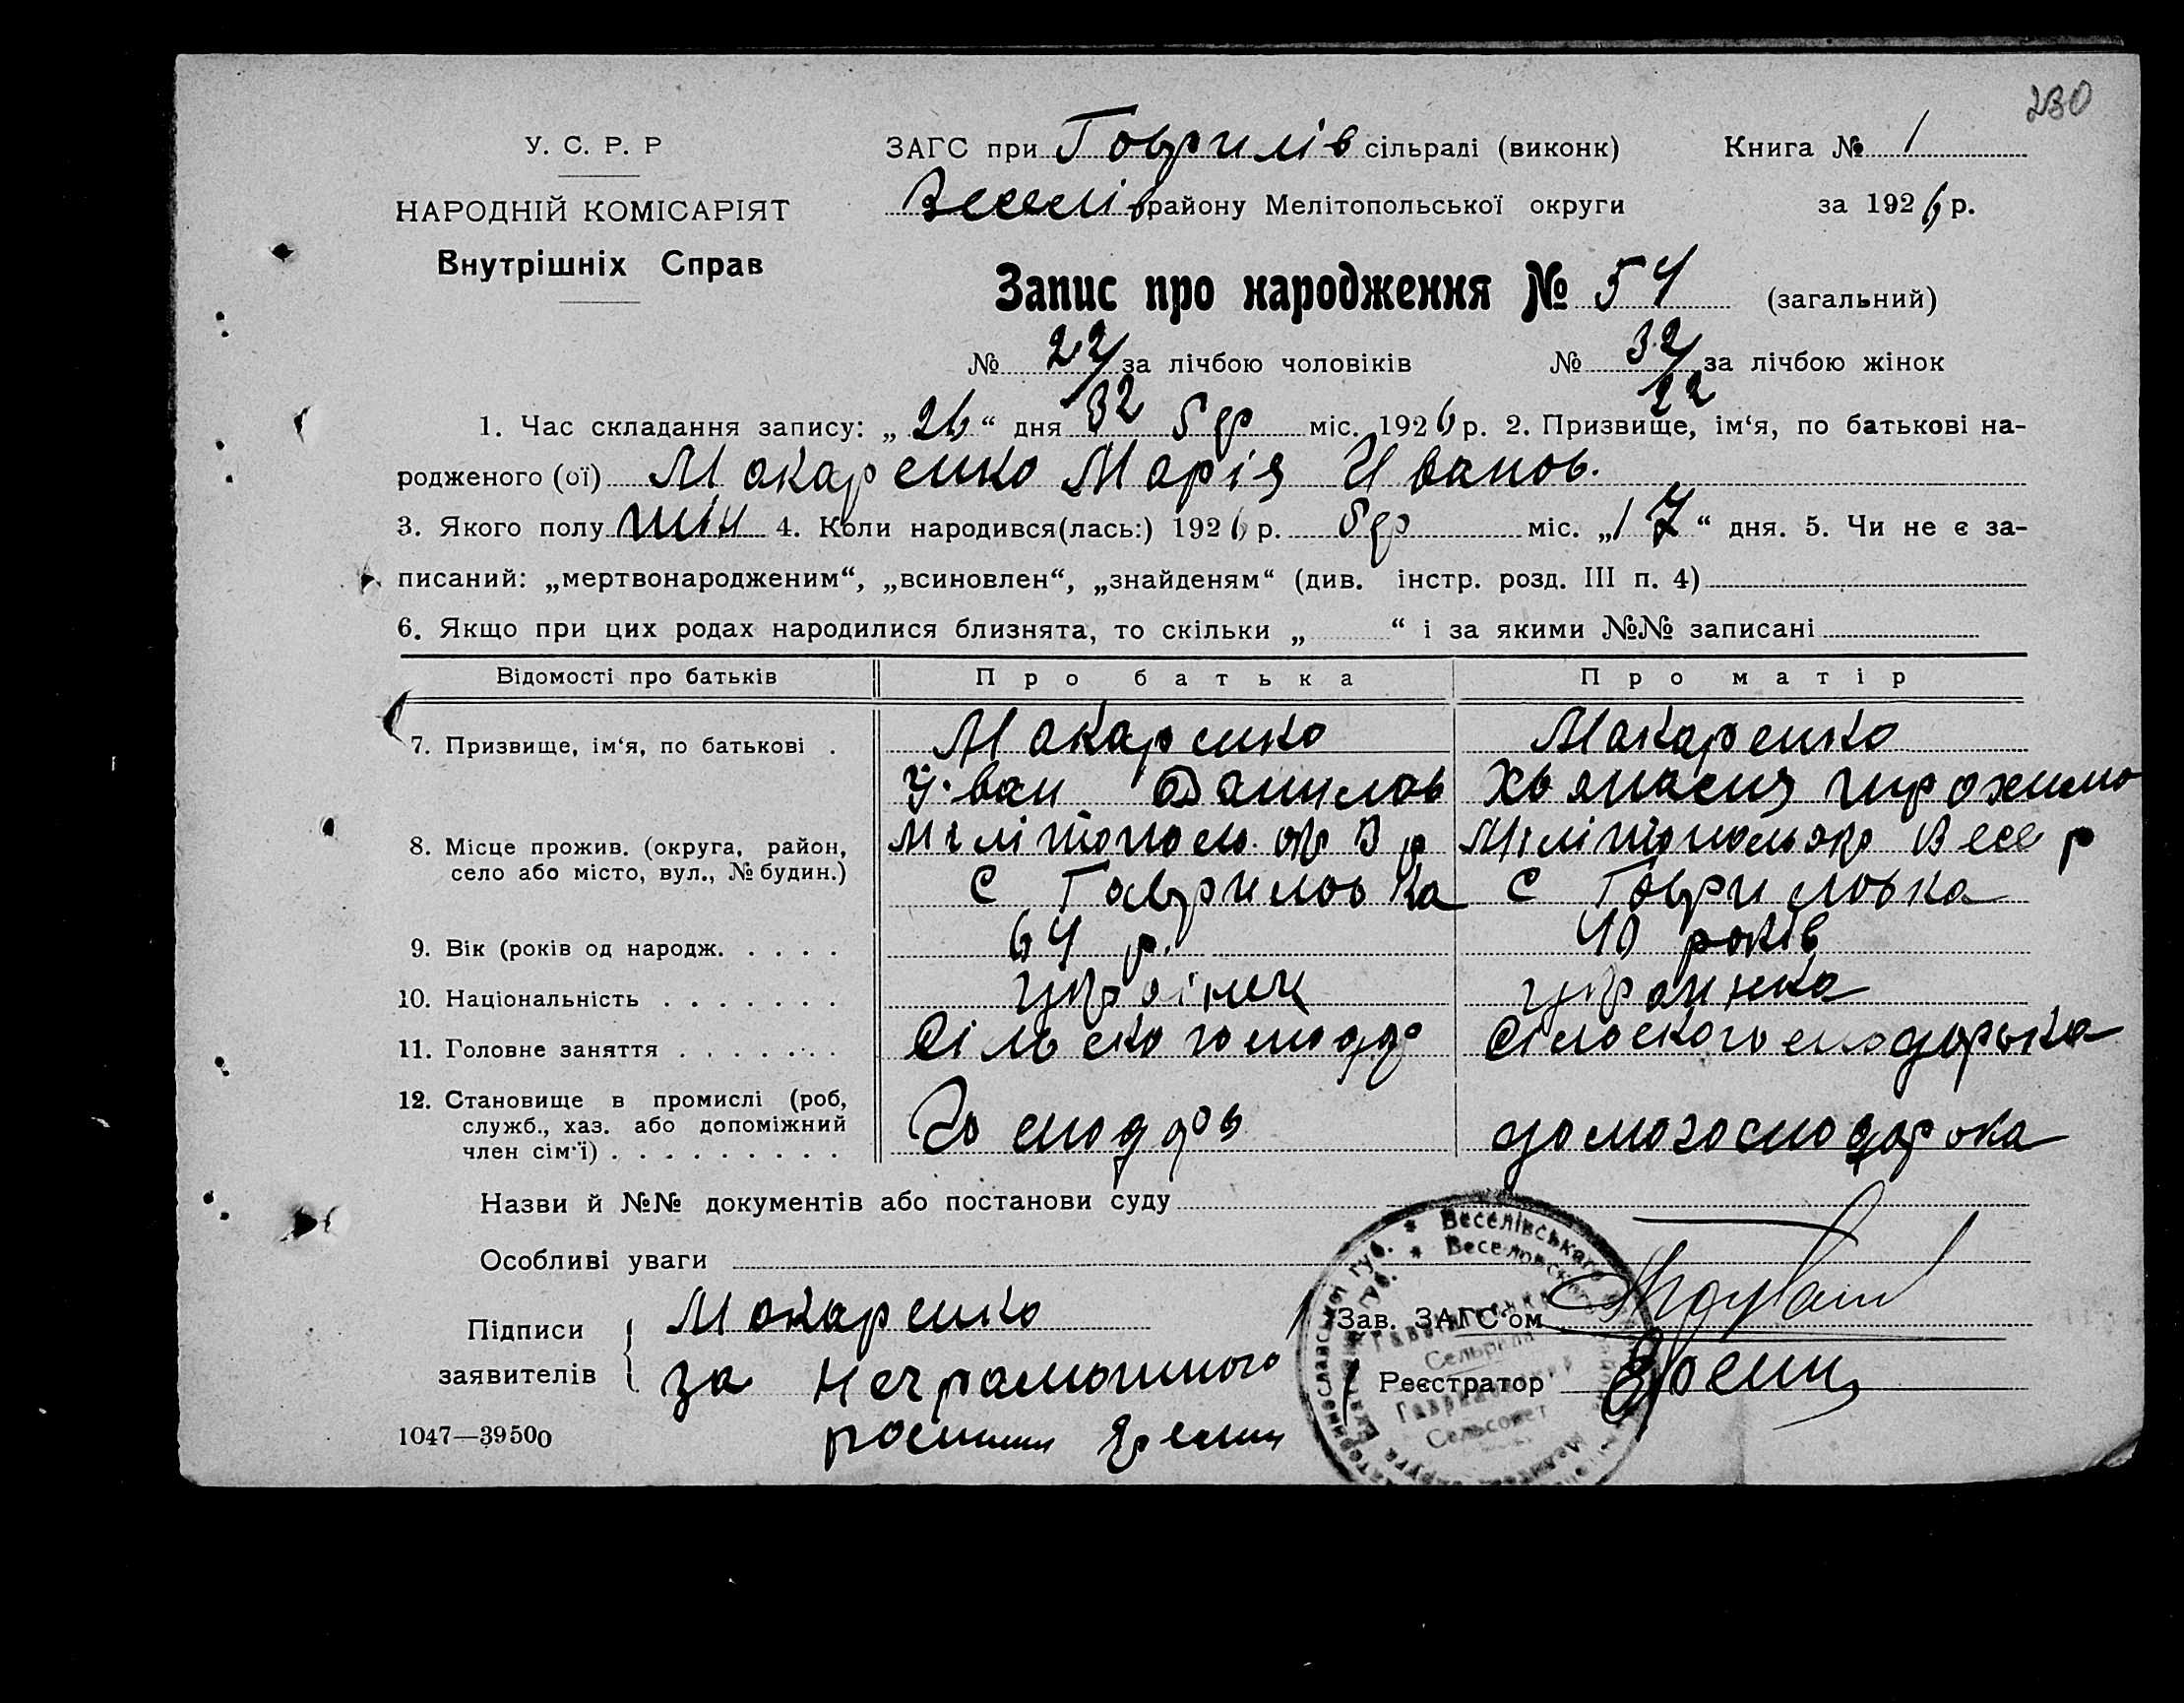 230
У. С. Р. Р
НАРОДНІЙ КОМІСАРІЯТ
Внутрішніх Справ
ЗАГС при Гаврилів сільраді (виконк) Книга № 1
Веселів району Мелітопольської округи за 1926 р.
Запис про народження № 54 (загальний)
№ 22 за лічбою чоловіків № 32 за лічбою жінок
22
32
1. Час складання запису: „26“ дня бер міс. 1926 р. 2. Призвище, ім‘я, по батькові на-
родженого (ої) Макаренко Марія Иванов.
3. Якого полу жін 4. Коли народився(лась:) 1926 р. бер міс. „17“ дня. 5. Чи не є за-
писаний: „мертвонародженим“, „всиновлен“, „знайденям“ (див. інстр. розд. III п. 4)
6. Якщо при цих родах народилися близнята, то скільки „ “ і за якими №№ записані
Відомості про батьків Про батька Про матір
7. Призвище, ім‘я, по батькові . Макаренко Макаренко
Йван Данилов
8. Місце прожив. (округа, район, село або місто, вул., № будин.) Мілітополь. окр В р Мілітополь окр Весе р
С Гавриловка С Гавриловка
9. Вік (років од народж. . . . . 64 р. 40 років
10. Національність . . . . . . . українец украинка
11. Головне заняття . . . . . . . Сільскогоспод Сільскогосподарька
12. Становище в промислі (роб, служб., хаз. або допоміжний член сім‘ї) . . . . . . . . . Господар домогосподарока
Назви й №№ документів або постанови суду
Особливі уваги
Підписи заявителів Макаренко
за неграмотного
Зав. ЗАГС‘ом
Реєстратор
1047—39500
Веселівського
Веселовского
Сельрада
Гаврилівський
Сельсовет